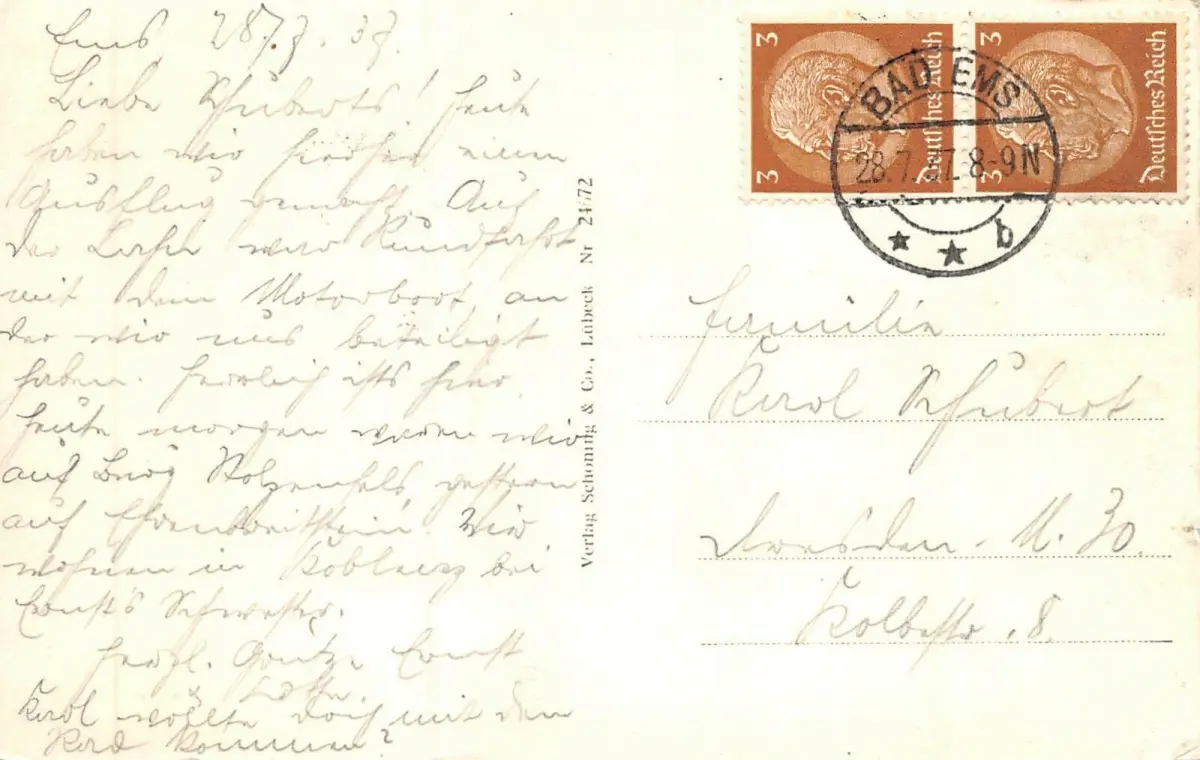 Ems 28.7.37.
Liebe Schuberts! Heute
haben wir hierher einen
Ausflug gemacht. Auf
der Lahn war Rundfahrt
mit dem Motorboot, an
der wir uns beteiligt
haben. Herrlich ists hier.
Heute morgen waren wir
auf Burg Stolzenfels, gestern
auf Ehrenbreitstein. Wir
wohnen in Koblenz bei
Ernst's Schwester.
Herzl. Grüße Ernst
& Lotte.
Karl wollte doch mit dem
Rad kommen?
Verlag Schöning & Co., Lübeck Nr 24172
3
3
Deutsches Reich
3
3
Deutsches Reich
BAD EMS
28.7.37.8-9N
b
Familie
Karl Schubert
Dresden-N. 30.
Kolbestr. 8.